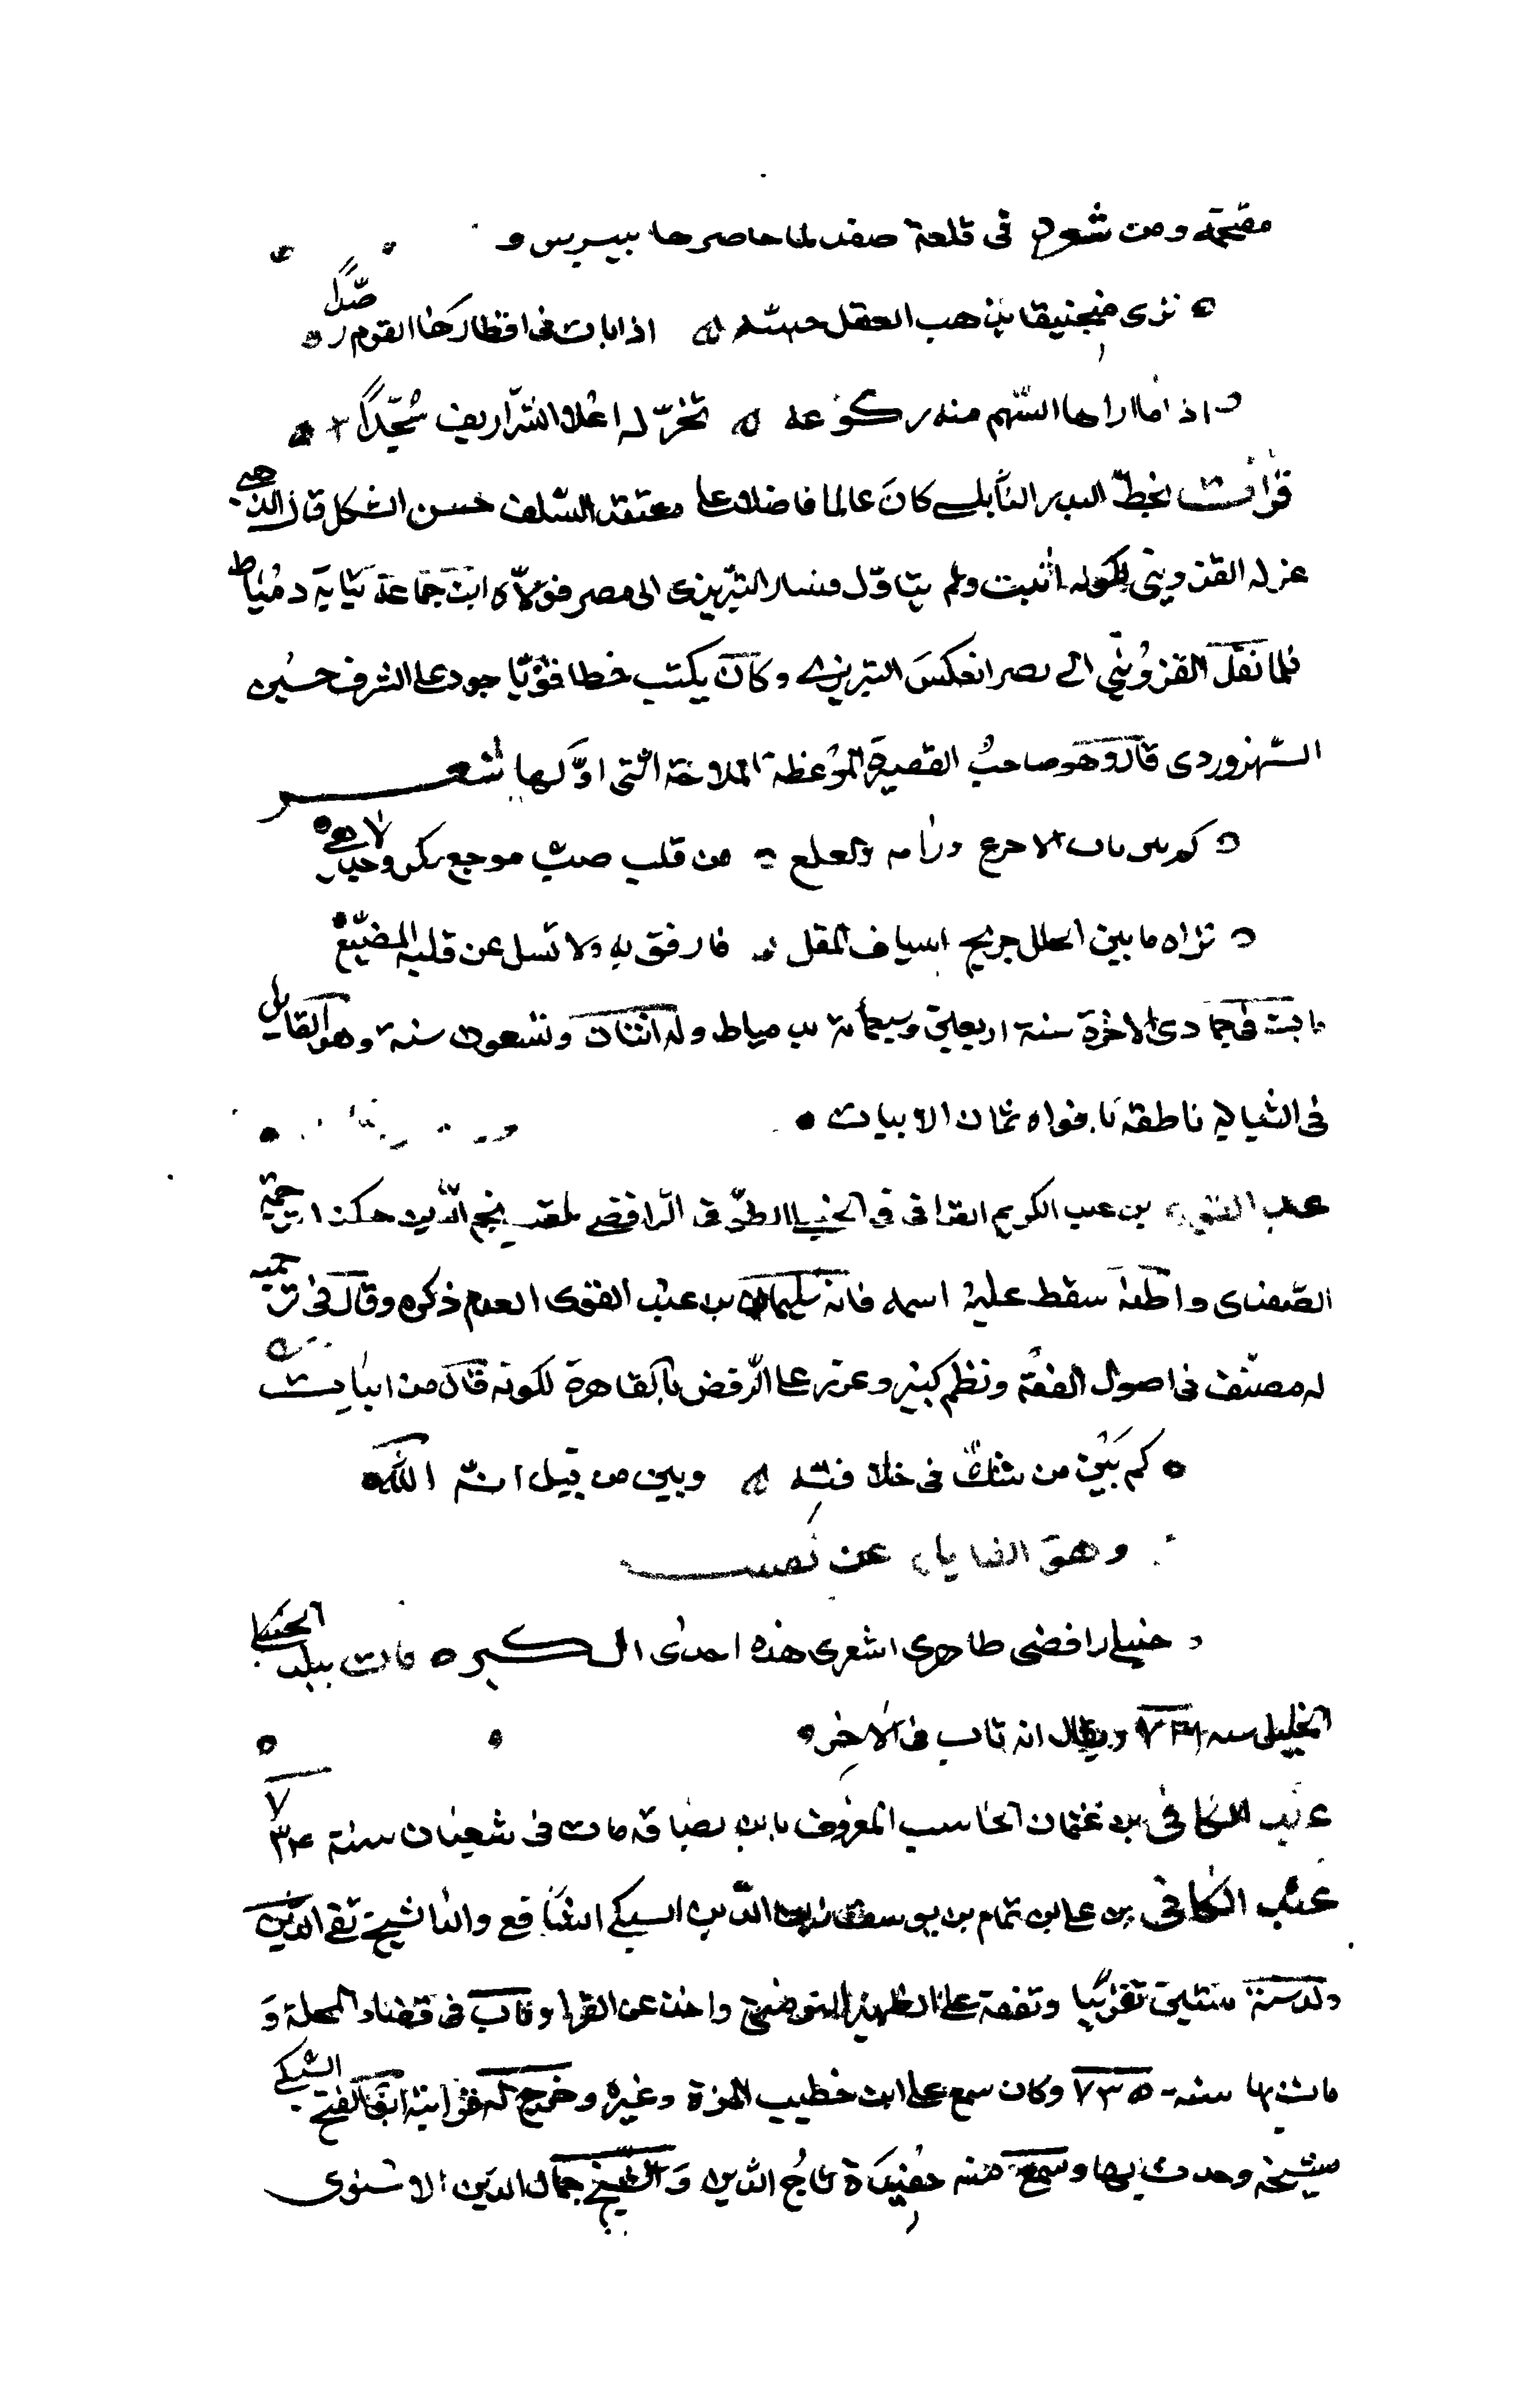 مقتحمة ومن شعره في قلعة صفد لما حاصرها بيبرس و
ترى منجنيقا يذهب العقل حسّه اذا بات في اقطارها القوم رصّدا
اذا ما اراها السّهم منه ركوعه تخرّ له اعلا الشّراريف سُجّدًا
قرأت بخطّ البدر النابلسي كانَ عالما فاضلا على معتقد السّلف حسن الشكل قال الذهبي
عزله القزويني لكونه اثبت ولم يتاوّل فسار التبريزى الى مصر فولّاه ابن جماعة نيابة دمياط
فلما نقل القزويني الى مصر انعكسَ التبريزي وكان يكتب خطا قويّا جود على الشرف حسين
السّهروردى قال وهو صاحبُ القصيدة الموعظة الملاحة التي اوّلها شعر
كم بين بان الاجرع ورامه ولعلع من قلب صبّ موجع
تراه ما بين الحلل جريح اسياف المقل فارفق به ولا تسل عن قلبه المضيّع
مات في جمادى الاخرة سنة اربعين وسبعمائة بدمياط وله اثنتان وتسعون سنة وهو القايل
في الشبابة ناطقة بافواه ثمان الابيات
عبد القوي بن عبد الكريم القرافي الحنبلي الطوفى الرافضي يلقب نجم الدّين هكذا ترجمة
الصّفدى واظنه سقط عليه اسمه فانه سليمان بن عبد القوى المقدم ذكره وقال في ترجمته
له مصنّف في اصول الفقة ونظم كثير وعزر على الرّفض بالقاهرة لكونه قال من ابيات
كم بَيْن من شكّ في خلافته وبين من قيل انّه اللّه
وهو القايل عن نفسه
حنبلي رافضي ظاهري اشعرى هذه احدى الكبر مات ببلد
الخليل سنه ٧١٦ ويقال انه تاب في الاخر
عبد الكافي بن عثمان الحاسب المعروف بابن بصاقه مات في شعبان سنة ٧٣٤
عبد الكافي بن على بن تمام بن يوسف زين الدّين السبكي الشافع والد الشيخ تقي الدّين
ولد سنة ستين تقريبا وتفقة على الظهير التزمنتي واخذ عن القرافي وناب في قضاء المحلة وَ
مات بها سنة ٧٣٥ وكان سمع على ابن خطيب المزة وغيره وخرج له قرابته ابو الفتح السّبكي
مشيخة وحدث بها وسمع منه حفيدة تاجُ الدّين وَالشيخ جمال الدين الاسنوى